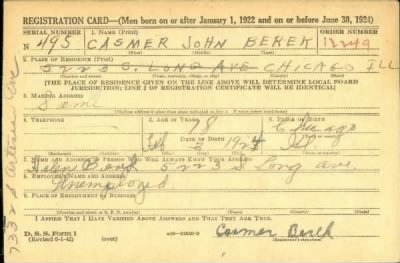 REGISTRATION CARD—(Men born on or after January 1, 1922 and on or before June 30, 1924)
SERIAL NUMBER 1. NAME (Print) ORDER NUMBER
N 495 CASMER JOHN BEREK 12249
2. PLACE OF RESIDENCE (Print)
5223 S. LONG AVE CHICAGO ILL
[THE PLACE OF RESIDENCE GIVEN ON THE LINE ABOVE WILL DETERMINE LOCAL BOARD
JURISDICTION; LINE 2 OF REGISTRATION CERTIFICATE WILL BE IDENTICAL]
3. MAILING ADDRESS
Same
4. TELEPHONE 5. AGE IN YEARS 6. PLACE OF BIRTH
18 Chicago
DATE OF BIRTH
Feb 2 1924 Ill.
7. NAME AND ADDRESS OF PERSON WHO WILL ALWAYS KNOW YOUR ADDRESS
Helen Berek 5223 S Long ave.
8. EMPLOYER'S NAME AND ADDRESS
Unemployed
9. PLACE OF EMPLOYMENT OR BUSINESS
I AFFIRM THAT I HAVE VERIFIED ABOVE ANSWERS AND THAT THEY ARE TRUE.
D. S. S. Form 1
(Revised 6-1-42) (over)
Casmer Berek
(Registrant's signature)
7332 S Artesian Ave